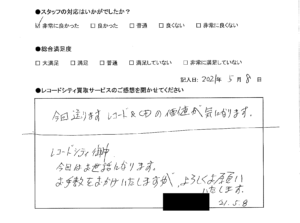 ●スタッフの対応はいかがでしたか？
☑ 非常に良かった　☐ 良かった　☐ 普通　☐ 良くない　☐ 非常に良くない
●総合満足度
☐ 大満足　☐ 満足　☐ 普通　☐ 満足していない　☐ 非常に満足していない
記入日: 2021年 5月 8日
●レコードシティ買取サービスのご感想を聞かせてください
今回送ります レコード& CDの 価値が 気になります。
レコードシティ御中
今回はお世話になります。
お手数をおかけいたしますが、よろしくお願い
いたします。
21.5.8